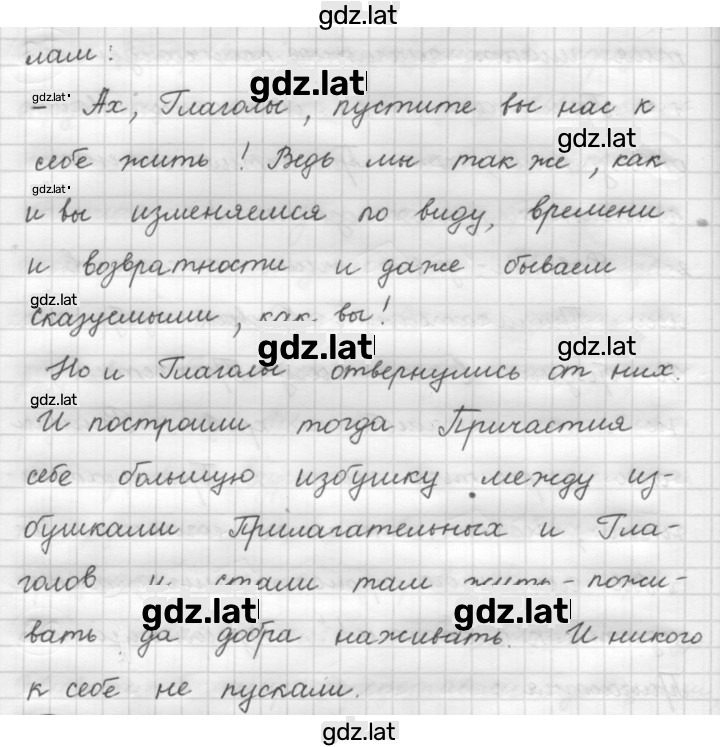 gdz.lat
лам:
gdz.lat
gdz.lat
- Ах, Глаголы, пустите вы нас к
gdz.lat
себе жить! Ведь мы так же, как
gdz.lat
и вы изменяемся по виду, времени
и возвратности и даже бываем
gdz.lat
сказуемыми, как вы!
gdz.lat gdz.lat
Но и Глаголы отвернулись от них.
gdz.lat
И построили тогда Причастия
себе большую избушку между из-
бушками Прилагательных и Гла-
голов и стали там жить-пожи-
gdz.lat gdz.lat
вать да добра наживать. И никого
к себе не пускали.
gdz.lat